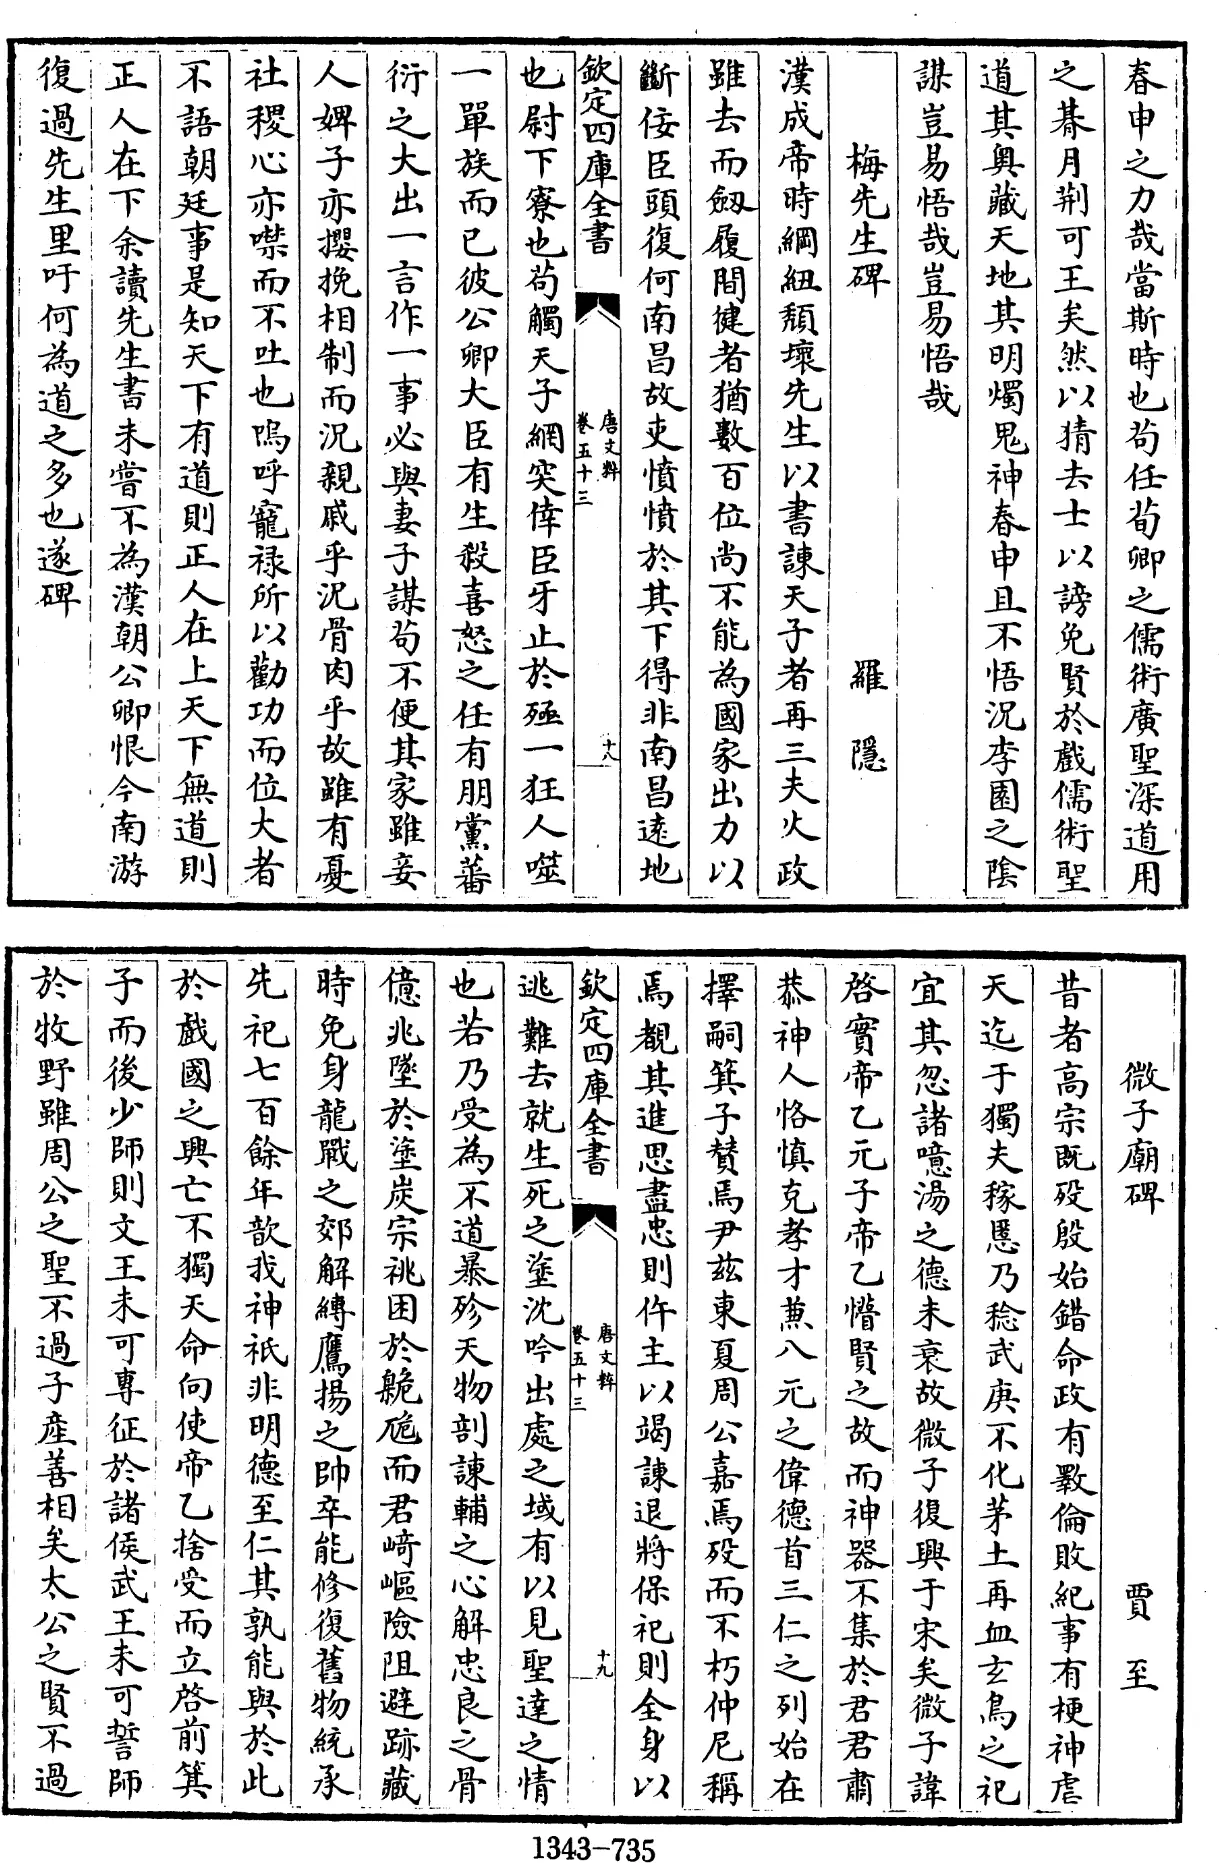 春申之力哉當斯時也茍任荀卿之儒術廣聖深道用
之朞月荆可王矣然以猜去士以謗免賢於戲儒術聖
道其奥藏天地其明燭鬼神春申且不悟況李園之陰
謀豈易悟哉豈易悟哉
梅先生碑 羅隱
漢成帝時綱紐頽壞先生以書諫天子者再三夫火政
雖去而劔履間健者猶數百位尚不能為國家出力以
斷佞臣頭復何南昌故吏憤憤於其下得非南昌逺地
欽定四庫全書
唐文粹
卷五十三
十八
也尉下寮也茍觸天子網突倖臣牙止於殛一狂人噬
一單族而已彼公卿大臣有生殺喜怒之任有朋黨蕃
衍之大出一言作一事必與妻子謀茍不便其家雖妾
人婢子亦攖挽相制而況親戚乎況骨肉乎故雖有憂
社稷心亦噤而不吐也嗚呼寵禄所以勸功而位大者
不語朝廷事是知天下有道則正人在上天下無道則
正人在下余讀先生書未嘗不為漢朝公卿恨今南游
復過先生里吁何為道之多也遂碑
微子廟碑 賈至
昔者髙宗既歿殷始錯命政有斁倫敗紀事有梗神虐
天迄于獨夫稼慝乃稔武庚不化茅土再血玄鳥之祀
宜其忽諸噫湯之德未衰故微子復興于宋矣微子諱
啓實帝乙元子帝乙懵賢之故而神器不集於君君肅
恭神人恪慎克孝才兼八元之偉德首三仁之列始在
擇嗣箕子賛焉尹兹東夏周公嘉焉歿而不朽仲尼稱
焉覩其進思盡忠則仵主以竭諫退將保祀則全身以
欽定四庫全書
唐文粹
卷五十三
十九
逃難去就生死之塗沈吟出處之域有以見聖達之情
也若乃受為不道暴殄天物剖諫輔之心解忠良之骨
億兆墜於塗炭宗祧困於臲卼而君﨑嶇險阻避跡藏
時免身龍戰之郊解縛鷹揚之帥卒能修復舊物統承
先祀七百餘年歆我神祇非明德至仁其孰能與於此
於戲國之興亡不獨天命向使帝乙捨受而立啓前箕
子而後少師則文王未可專征於諸侯武王未可誓師
於牧野雖周公之聖不過子産善相矣太公之賢不過
1343-735